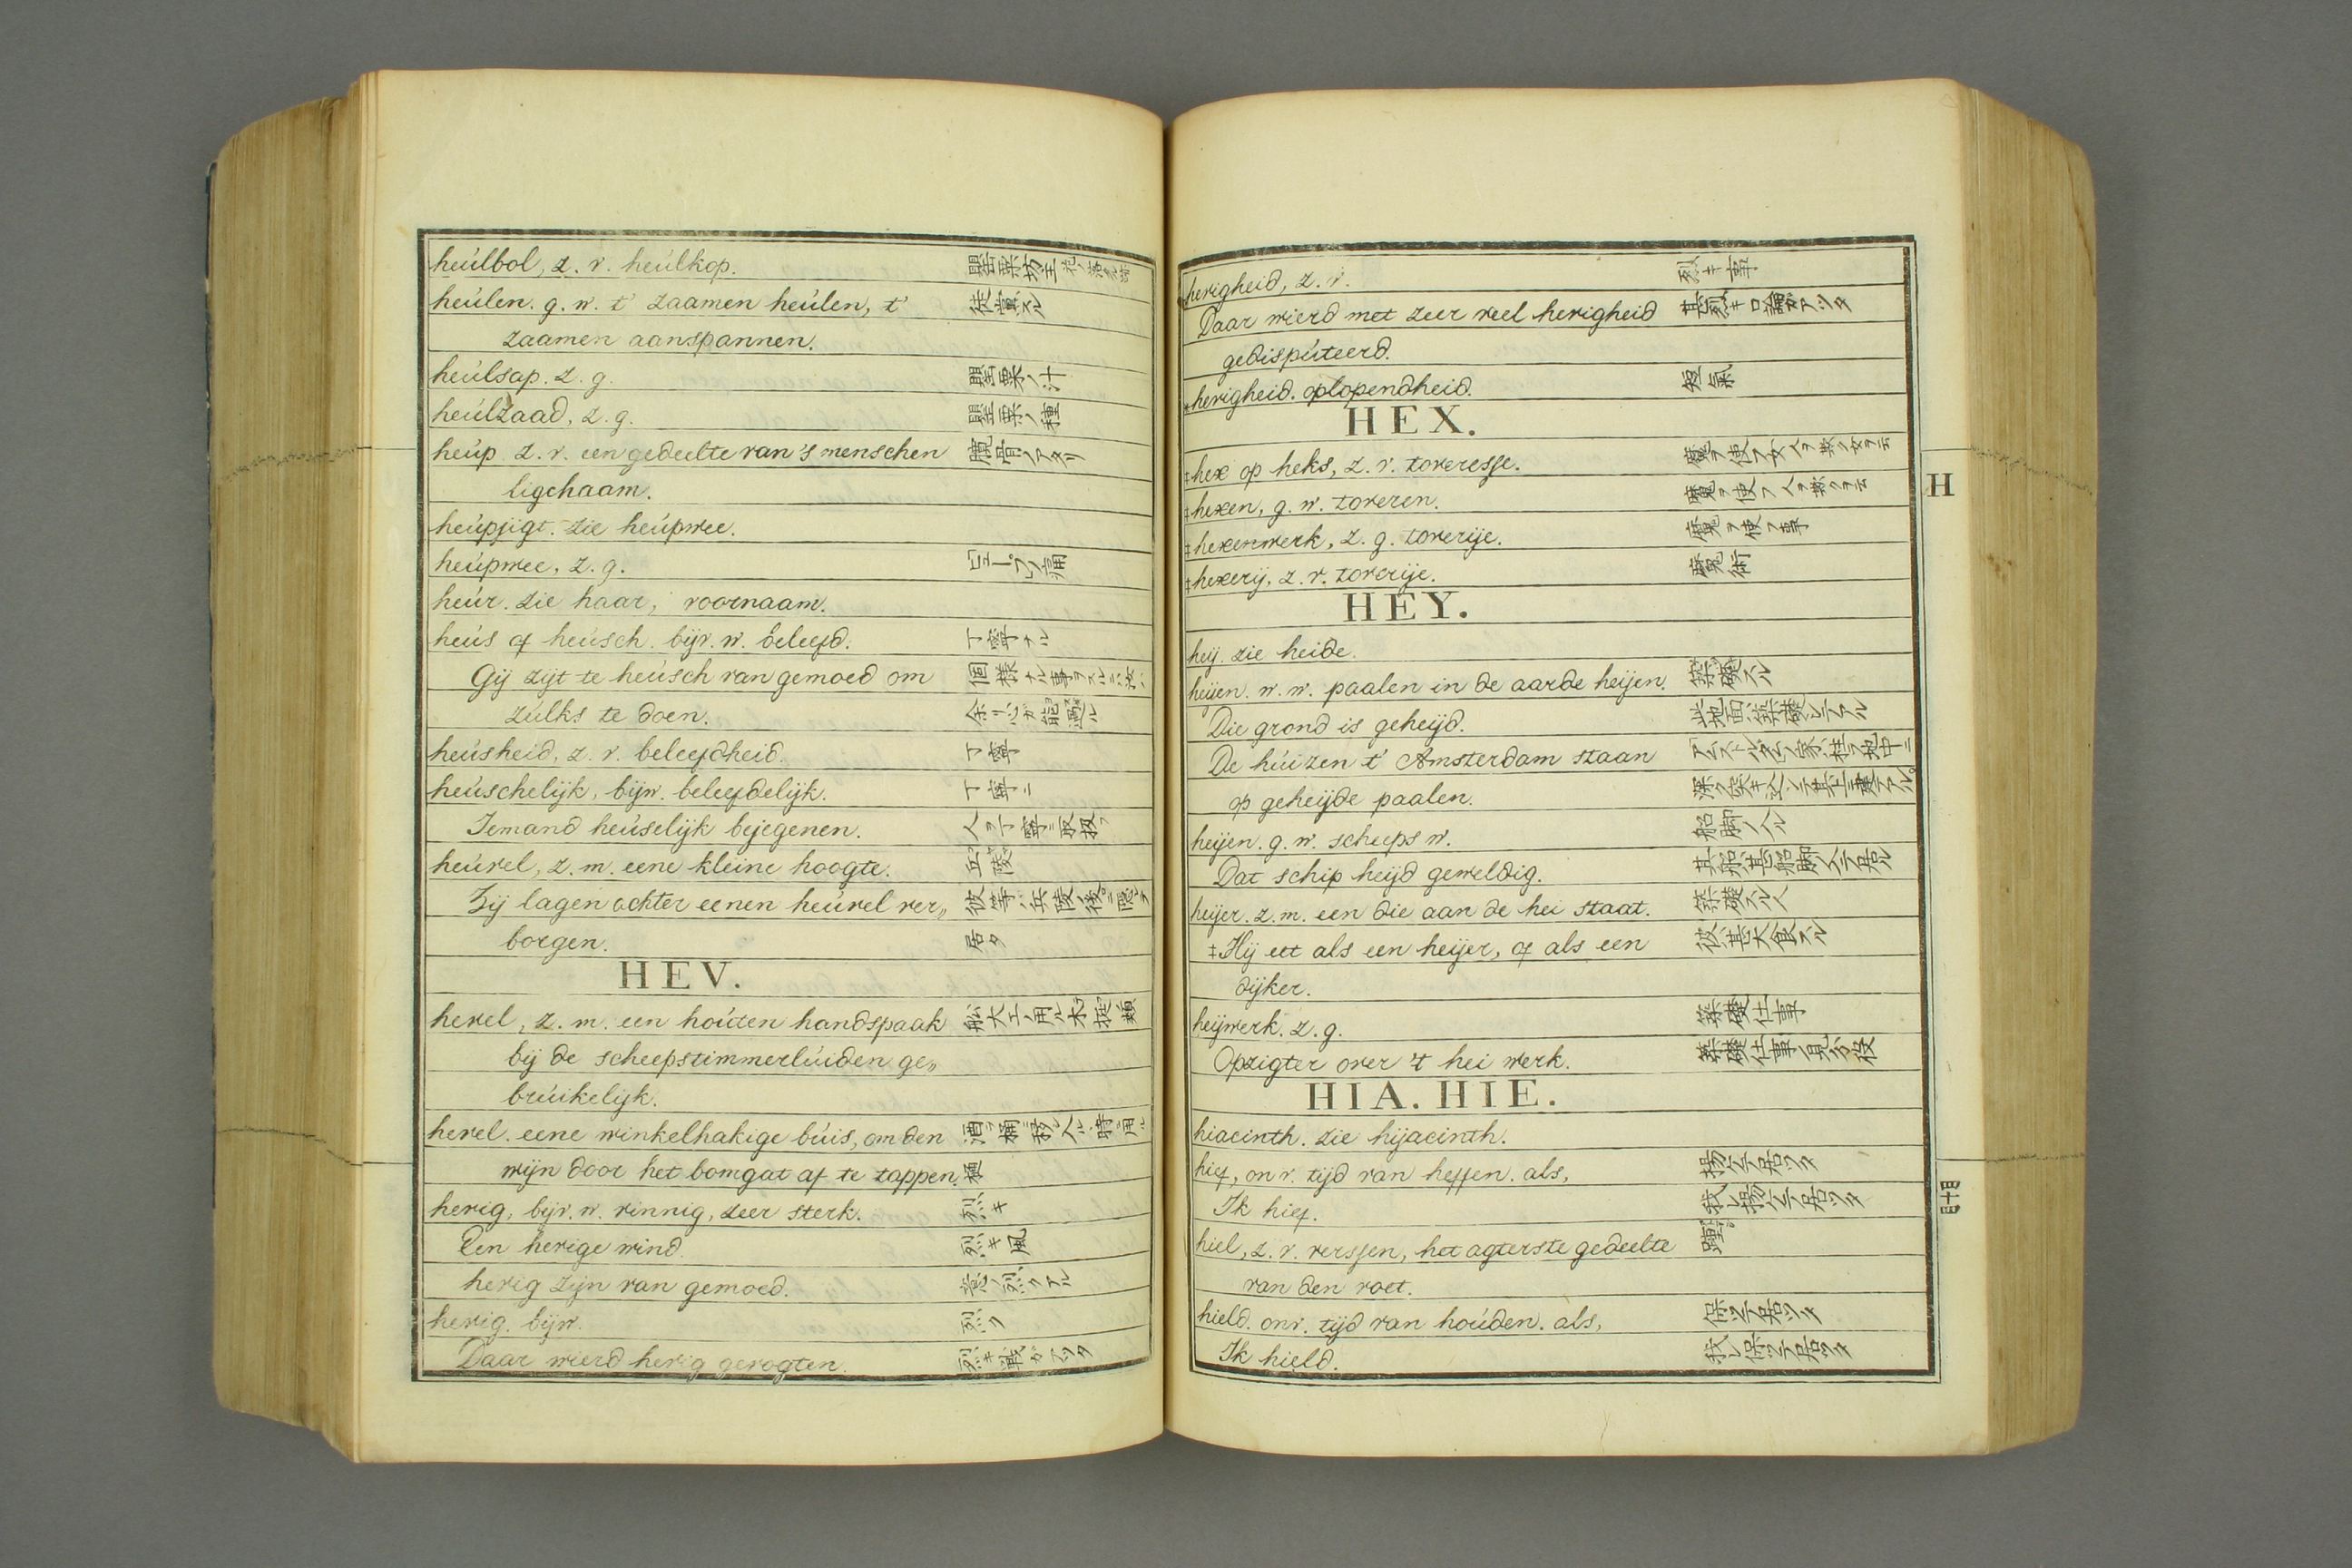 heúlbol, z. v. heúlkop. 罌粟坊主
heúlen. g. w. t' zaamen heúlen, t' 徒党スル
zaamen aanspannen.
heúlsap. z. g. 罌粟ノ汁
heúlzaad, z. g. 罌粟ノ種
heúp z. v. een gedeelte van 's menschen
ligchaam.
heúpjigt. zie heúpwee.
heúpwee, z. g.
heúr. zie haar, voornaam.
heús of heúsch. bijv. w. beleefd. 丁寧ナル
Gij zijt te heúsch van gemoed om
zúlks te doen.
heúsheid, z. v. beleefdheid. 丁寧
heúschelijk, bijw. beleefdelijk. 丁寧ニ
Iemand heúselijk bejegenen. 人ヲ丁寧ニ取扱フ
heúvel, z. m. eene kleine hoogte. 丘陵
Zij lagen achter eenen heúvel ver„
borgen. 居タ
HEV.
hevel, z. m. een hoúten handspaak
bij de scheepstimmerlúiden ge„
brúikelijk.
hevel. eene winkelhakige búis, om den
wijn door het bomgat af te tappen. 樋
hevig, bijv. w. vinnig, zeer sterk. 烈キ
Een hevige wind. 烈キ風
hevig zijn van gemoed.
hevig. bijw. 烈ク
Daar wierd hevig gevogten. 烈キ戦ガアツタ
hevigheid, z. v. 烈キ事
Daar wierd met zeer veel hevigheid 甚烈キ口論ガアツタ
gedispúteerd.
hevigheid. oplopendheid. 短氣
HEX.
‡hex op heks, z. v. toveresse.
‡hexen, g. w. toveren.
‡hexenwerk, z. g. toverije. 魔ヲ使フ事
‡hexerij, z. v. toverije. 魔術
HEY.
heij. zie heide.
heijen. w. w. paalen in de aarde heijen. 築礎スル
Die grond is geheijd.
De húizen t' Amsterdam staan
op geheijde paalen.
heijen. g. w. scheeps w.
Dat schip heijd geweldig.
heijer. z. m. een die aan de hei staat. 築礎スル人
‡Hij eet als een heijer, of als een 彼ハ甚大食スル
dijker.
heijwerk. z. g. 築礎仕事
Opzigter over 't hei werk.
HIA. HIE.
hiacinth. zie hijacinth.
hief, on v. tijd van heffen. als, 揚ゲテ居ツタ
Ik hief. 我レ揚ゲテ居ツタ
hiel, z. v. verssen, het agterste gedeelte 踵
van den voet.
hield. onv. tijd van hoúden. als, 保ツテ居ツタ
Ik hield. 我レ保ツテ居ツタ
H